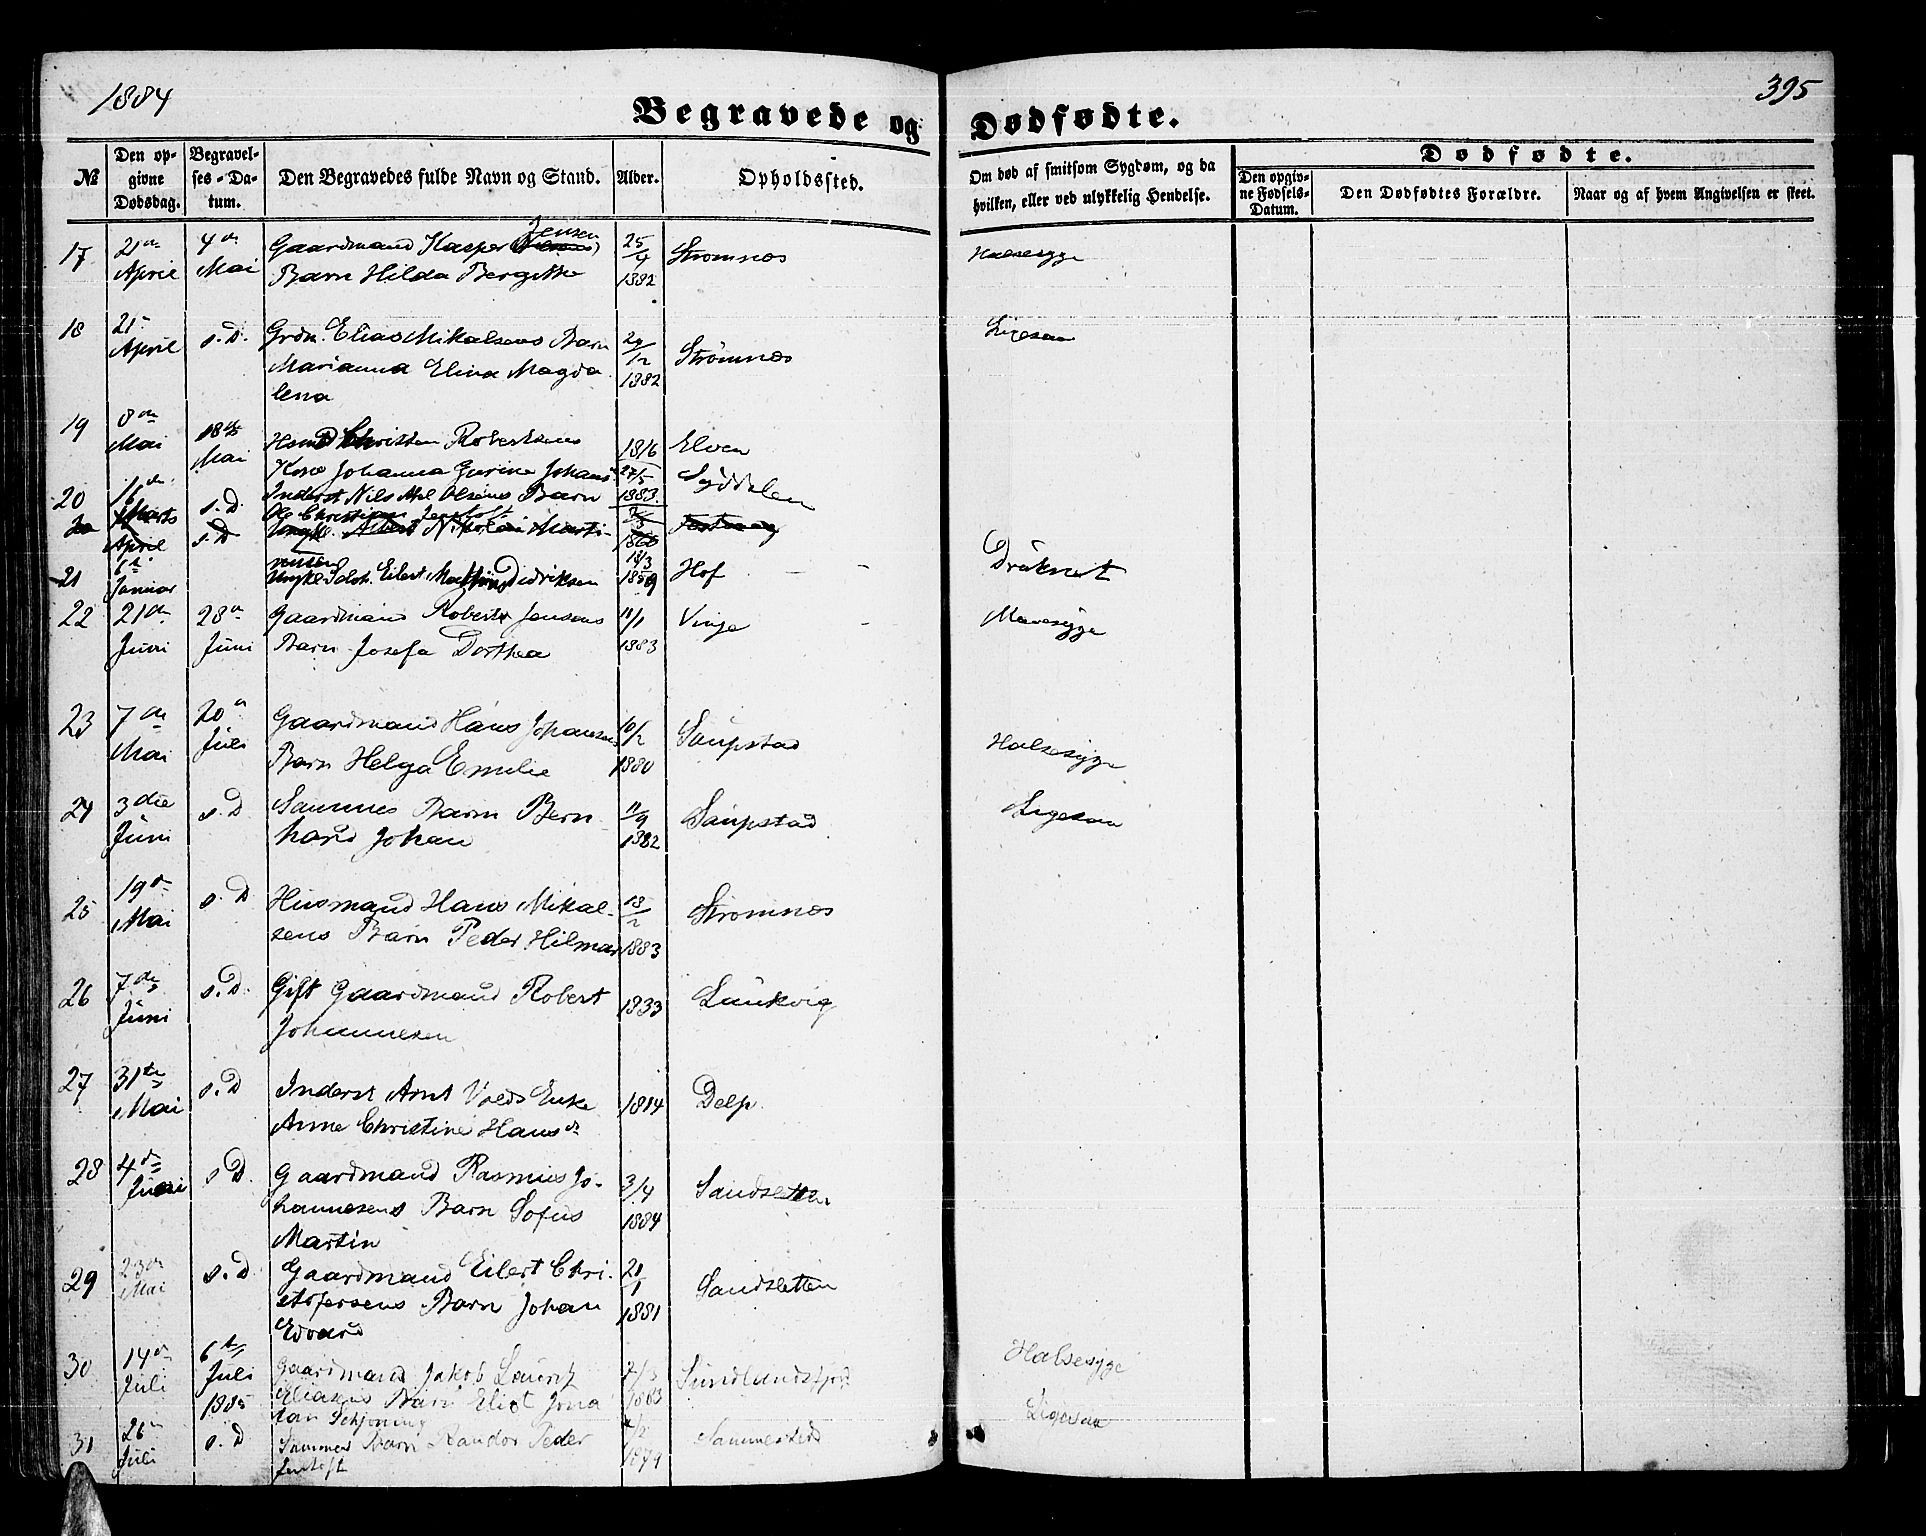 1884
395
Begravede og Dødfødte.
№
Den opgivne Dødsdag.
Begravelses-Datum.
Den Begravedes fulde Navn og Stand.
Alder.
Opholdssted.
Om død af smitsom Sygdom, og da hvilken, eller ved ulykkelig Hendelse.
Dødfødte.
Den opgivne Fødsels-Datum.
Den Dødfødtes Forældre.
Naar og af hvem Angivelsen er skeet.
17 21de April 4de Mai Gaardmand Kasper Jensen 25/4 1882 Strømnæs Halsesyge
Barn Hilda Bergitte
18 21 April s.D. Grdm. Elias Mikalsens Barn 1882 Strømnæs Ligesaa
Marianna Elina Magda
lena
19 8de Mai 18de Mai Christen Robertsens 1816 Elven
Kone Johanna Gurine Johans
20 16de Marts s.D. Inderst Nils Olsens Barn 27/5 1883 Syddalen
Ole Christian
April s.D Nikolai Marti-
21 6te Januar Ungkl. Eilert Didriksen 18/3 Hof Druknet
22 21de Juni 28de Juni Gaardmand Robert Jensens 11/1 1883 Vinje Mavesyge
Barn Josefa Dorthea
23 7de Mai 20de Juli Gaardmand Hans Johansens 10/2 1880 Saupstad Halsesyge
Barn Helga Emilie
24 3die Juni s.D Sammes Barn Bern- 11/9 1882 Saupstad Ligesaa
hard Johan
25 19de Mai s.D Husmand Hans Mikal- 13/2 1883 Strømnæs
sens Barn Peder Hilmar
26 7de Juni s.D. Gift Gaardmand Robert 1833 Laukvig
Johannesen
27 31te Mai s.D Inderst Arnt Enke 1814 Delp
Anne Christine Hansd
28 4de Juni s.D Gaardmand Rasmus Jo- 3/4 1884 Sandsletten
hannesens Barn Sofus
Martin
29 23de Mai s.D Gaardmand Eilert Chri- 21/1 1881 Sandsletten
stofersens Barn Johan
Edvard
30 14de Juli 6te Juli 1885 Gaardmand Jakob Lauritz 1883 Sundlandsfjord Halsesyge
Eliasens Barn Eliot Jona
tan Schjoning
31 26de Juli s.D Sammes Barn Randor Peder 1879 Sammesteds Ligesaa
Jentoft